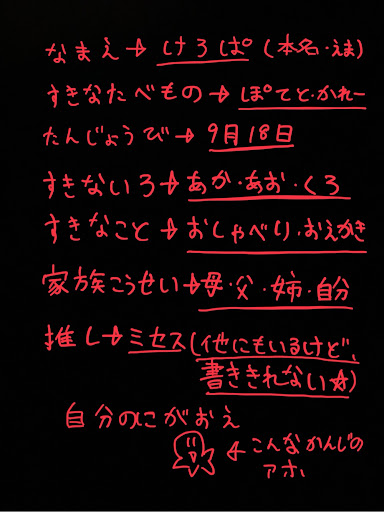 なまえ→けろぱ(本名・えま)
すきなたべもの→ぽてと・かれー
たんじょうび→9月18日
すきないろ→あか・あお・くろ
すきなこと→おしゃべり・おえかき
家族こうせい→母・父・姉・自分
推し→ミセス(他にもいるけど、
書ききれない☆)
自分のにがおえ
←こんなかんじの
アホ